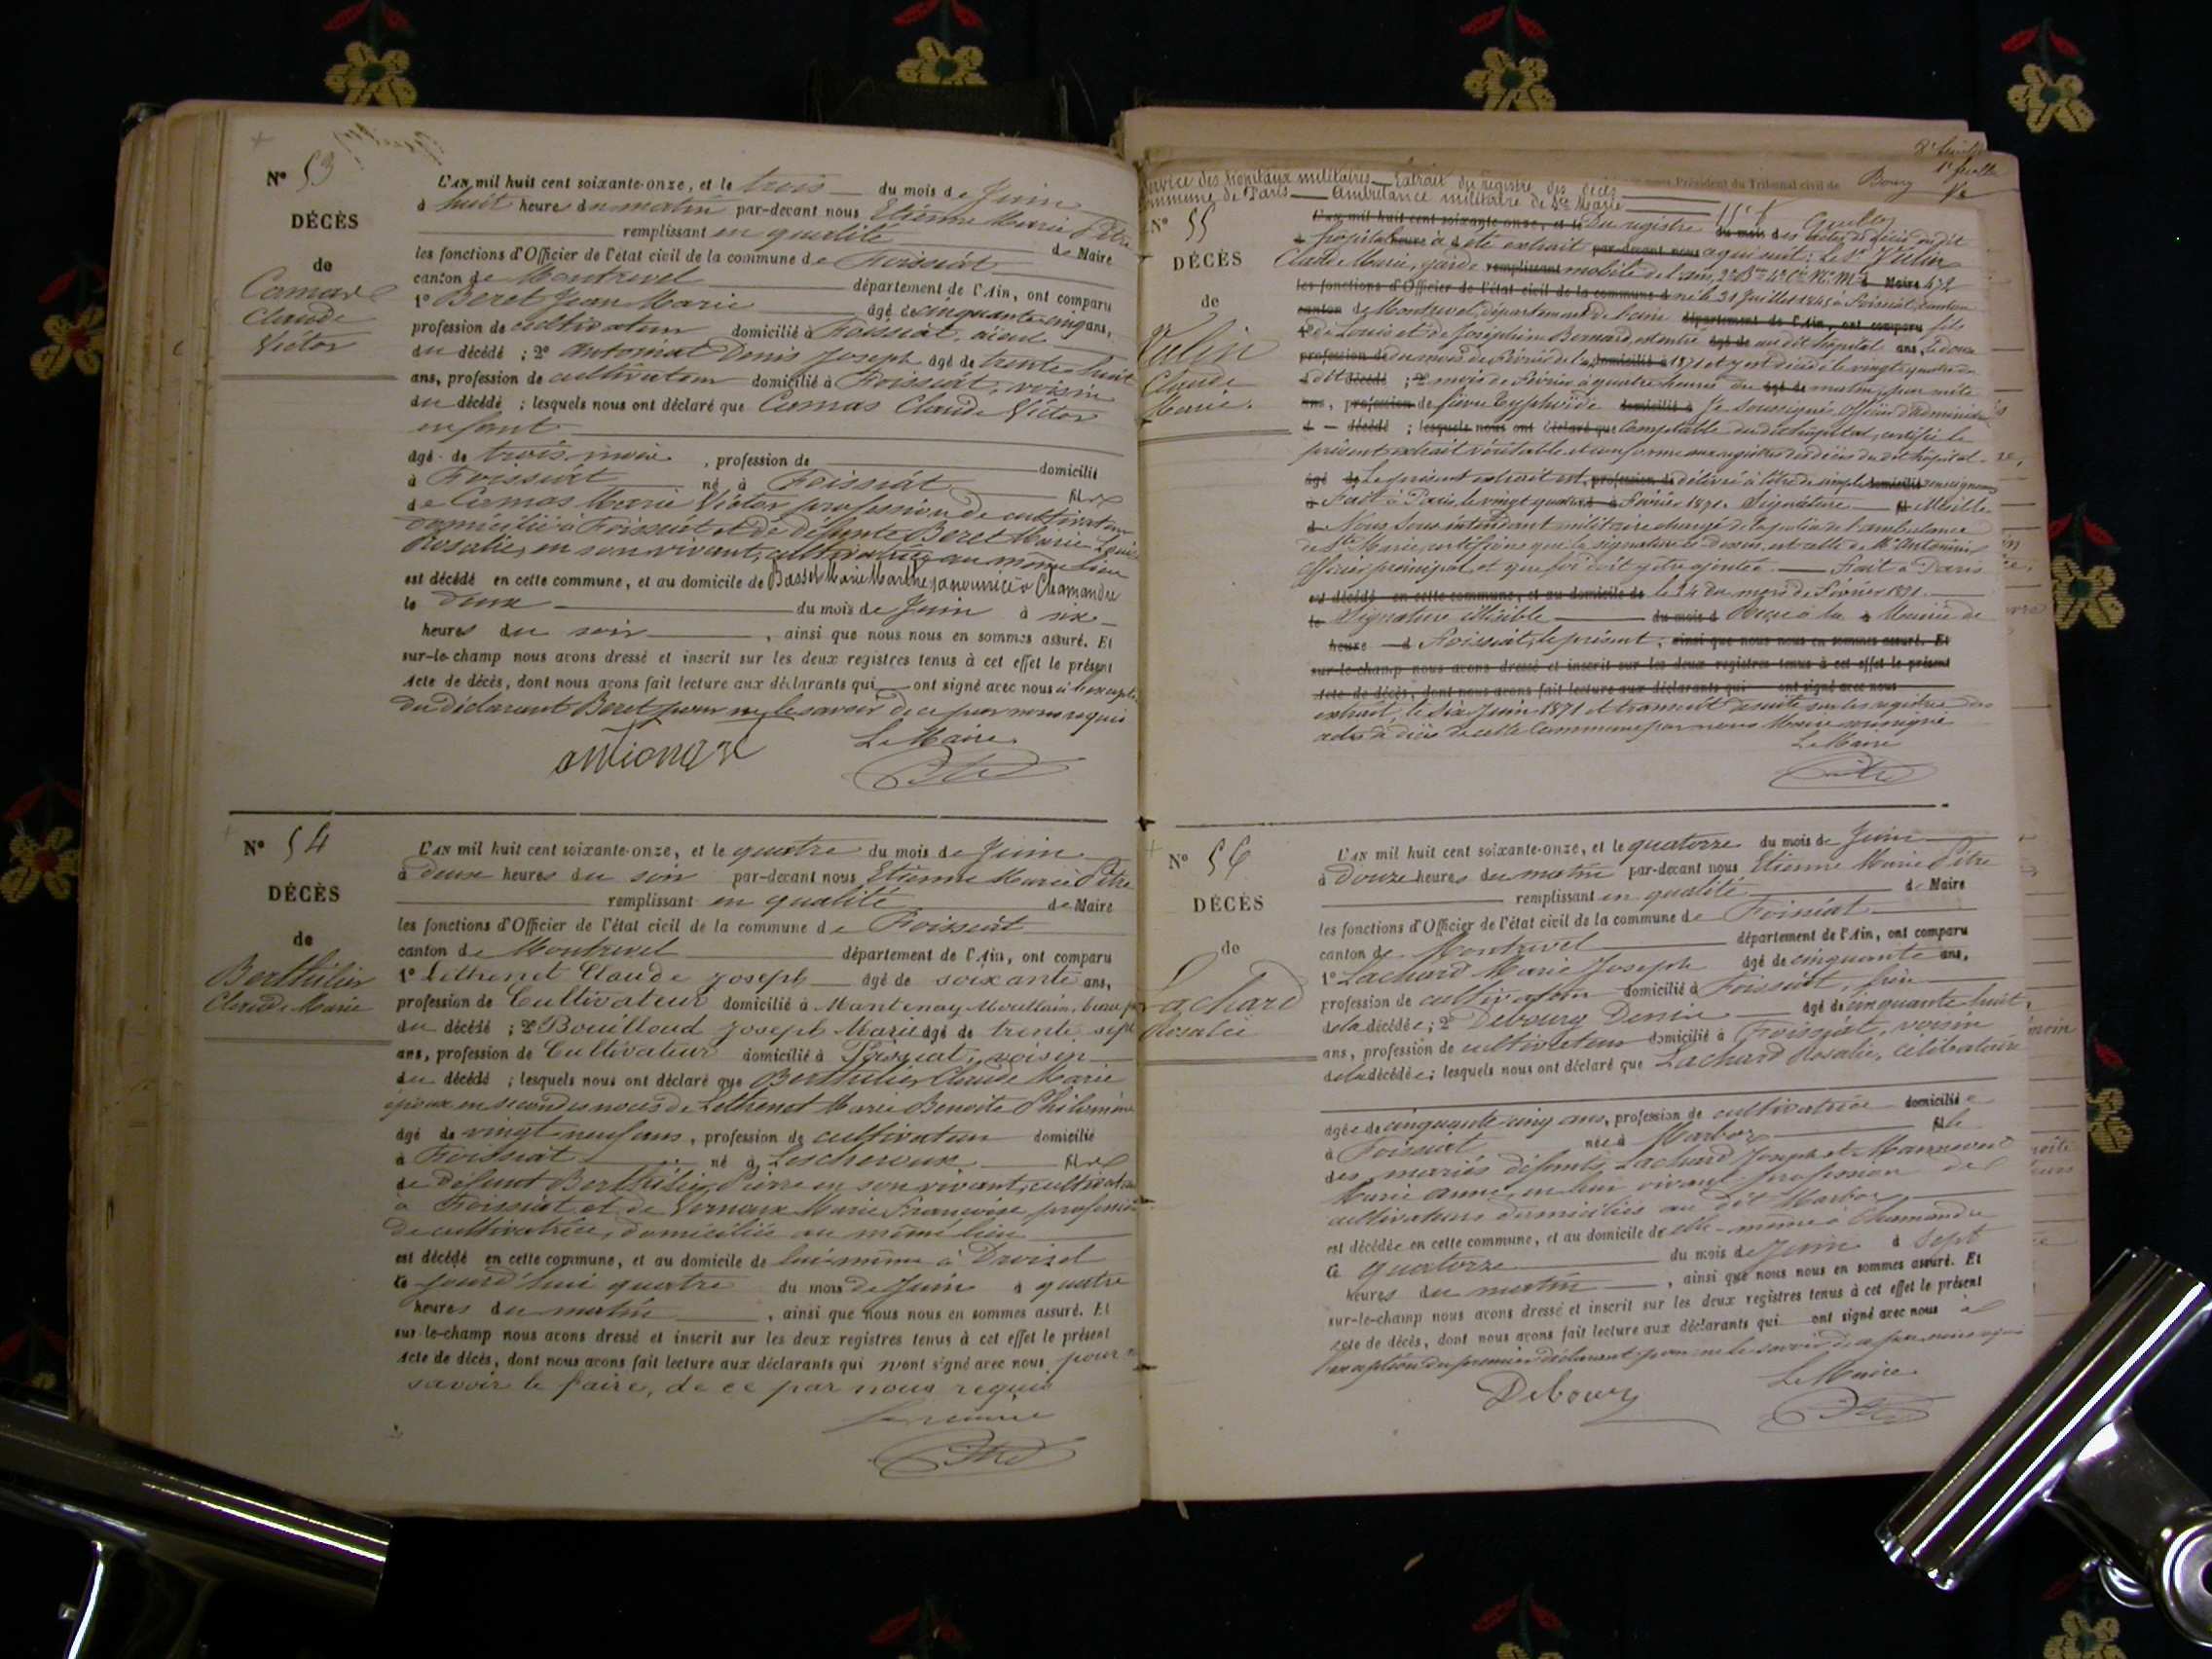 N° 53
DÉCÈS
de
Comas
Claude
Victor
L'AN mil huit cent soixante-onze, et le trois du mois de Juin
à huit heures du matin par-devant nous Etienne Marie Pitre
remplissant en qualité de Maire
les fonctions d'Officier de l'état civil de la commune de Foissiat
canton de Montrevel département de l'Ain, ont comparu
1° Beret Jean Marie âgé de cinquante cinq ans,
profession de cultivateur domicilié à Foissiat, aïeul
du décédé ; 2° Antoinat Denis Joseph âgé de trente huit
ans, profession de cultivateur domicilié à Foissiat, voisin
du décédé ; lesquels nous ont déclaré que Comas Claude Victor
enfant
âgé de trois mois, profession de domicilié
à Foissiat né à Foissiat fils
de Comas Marie Victor profession de cultivateur
domicilié à Foissiat et de défunte Beret Marie Louise
Rosalie, en son vivant, cultivatrice au même lieu
est décédé en cette commune, et au domicile de Basset Marie Marthe sa nourrice à Chamandre
le deux du mois de Juin à six
heures du soir, ainsi que nous nous en sommes assuré. Et
sur-le-champ nous avons dressé et inscrit sur les deux registres tenus à cet effet le présent
Acte de décès, dont nous avons fait lecture aux déclarants qui ont signé avec nous à l'except.
du déclarant Beret pour ne le savoir de ce par nous requis
Le Maire
Pitre
N° 54
DÉCÈS
de
Berthilier
Claude Marie
L'AN mil huit cent soixante-onze, et le quatre du mois de Juin
à deux heures du soir par-devant nous Etienne Marie Pitre
remplissant en qualité de Maire
les fonctions d'Officier de l'état civil de la commune de Foissiat
canton de Montrevel département de l'Ain, ont comparu
1° Lethenet Claude Joseph âgé de soixante ans,
profession de Cultivateur domicilié à Mantenay Montlain, beau père
du décédé ; 2° Bouilloud Joseph Marie âgé de trente sept
ans, profession de Cultivateur domicilié à Foissiat, voisin
du décédé ; lesquels nous ont déclaré que Berthilier Claude Marie
époux en secondes noces de Lethenet Marie Benoite Philomène
âgé de vingt neuf ans, profession de cultivateur domicilié
à Foissiat né à Lescheroux fils
de défunt Berthilier Pierre en son vivant, cultivateur
à Foissiat et de Vernoux Marie Françoise profession
de cultivatrice, domiciliée au même lieu
est décédé en cette commune, et au domicile de lui-même à
le jourd'hui quatre du mois de Juin à quatre
heures du matin, ainsi que nous nous en sommes assuré. Et
sur-le-champ nous avons dressé et inscrit sur les deux registres tenus à cet effet le présent
Acte de décès, dont nous avons fait lecture aux déclarants qui n'ont signé avec nous, pour ne
savoir le faire, de ce par nous requis
Le Maire
Pitre
Président du Tribunal civil de Bourg
Service des hôpitaux militaires Extrait du registre des décès
Commune de Paris Ambulance militaire de Ste Marie
N° 55
DÉCÈS
de
Vulin
Claude
Marie.
L'AN mil huit cent soixante-onze, et le Du registre du mois des actes de décès du dit
hôpital heure à été extrait par-devant nous ce qui suit : le Sr Vulin
Claude Marie, garde remplissant mobile de l'ain, 2e Bon 4e Cie N° Mle Maire 472
les fonctions d'Officier de l'état civil de la commune d né le 31 Juillet 1845 à Foissiat, canton
canton de Montrevel, département de l'ain département de l'Ain, ont comparu fils
1° de Louis et de Joséphine Bernard, est entré âgé de au dit hôpital ans, le douze
profession de du mois de Février de l'a domicilié à 1871 et y est décédé le vingt quatre du
dit décédé ; 2° mois de Février à quatre heures du âgé de matin, par suite
ans, profession de fièvre typhoïde domicilié à Je soussigné, officier d'administr
d décédé ; lesquels nous ont déclaré que Comptable du dit hôpital, certifie le
présent extrait véritable et conforme aux registres des décès du dit hôpital
âgé de Le présent extrait est profession de délivré à titre de simple domicilié renseignement
à Fait à Paris, le vingt quatre à Février 1871. Signature fil illisible
de Nous Sous intendant militaire chargé de la police de l'ambulance
de Ste Marie, certifions que la signature ci-dessus, est celle de Mr Antonini
officier principal et que foi doit y être ajoutée. Fait à Paris
est décédé en cette commune, et au domicile de le 24 du mois de Février 1871.
le Signature illisible du mois d Reçu à la à Mairie de
heure d Foissiat, le présent, ainsi que nous nous en sommes assuré. Et
sur-le-champ nous avons dressé et inscrit sur les deux registres tenus à cet effet le présent
Acte de décès, dont nous avons fait lecture aux déclarants qui ont signé avec nous
extrait, le six Juin 1871 et transcrit de suite sur les registres des
actes de décès de cette Commune par nous Maire soussigné
Le Maire
Pitre
N° 56
DÉCÈS
de
Lachard
Rosalie
L'AN mil huit cent soixante-onze, et le quatorze du mois de Juin
à douze heures du matin par-devant nous Etienne Marie Pitre
remplissant en qualité de Maire
les fonctions d'Officier de l'état civil de la commune de Foissiat
canton de Montrevel département de l'Ain, ont comparu
1° Lachard Marie Joseph âgé de cinquante ans,
profession de cultivateur domicilié à Foissiat, frère
de la décédée ; 2° Debourg Denis âgé de cinquante huit
ans, profession de cultivateur domicilié à Foissiat, voisin
de la décédée ; lesquels nous ont déclaré que Lachard Rosalie, célibataire
âgée de cinquante cinq ans, profession de cultivatrice domiciliée
à Foissiat née à Marboz fille
des mariés défunts, Lachard Joseph et
Marie Anne, en leur vivant profession de
cultivateurs domiciliés au dit Marboz
est décédée en cette commune, et au domicile de elle-même à Chamandre
le quatorze du mois de Juin à sept
heures du matin, ainsi que nous nous en sommes assuré. Et
sur-le-champ nous avons dressé et inscrit sur les deux registres tenus à cet effet le présent
acte de décès, dont nous avons fait lecture aux déclarants qui ont signé avec nous à
l'exception du premier déclarant pour ne le savoir de ce par nous requis
Le Maire
Debourg
Pitre